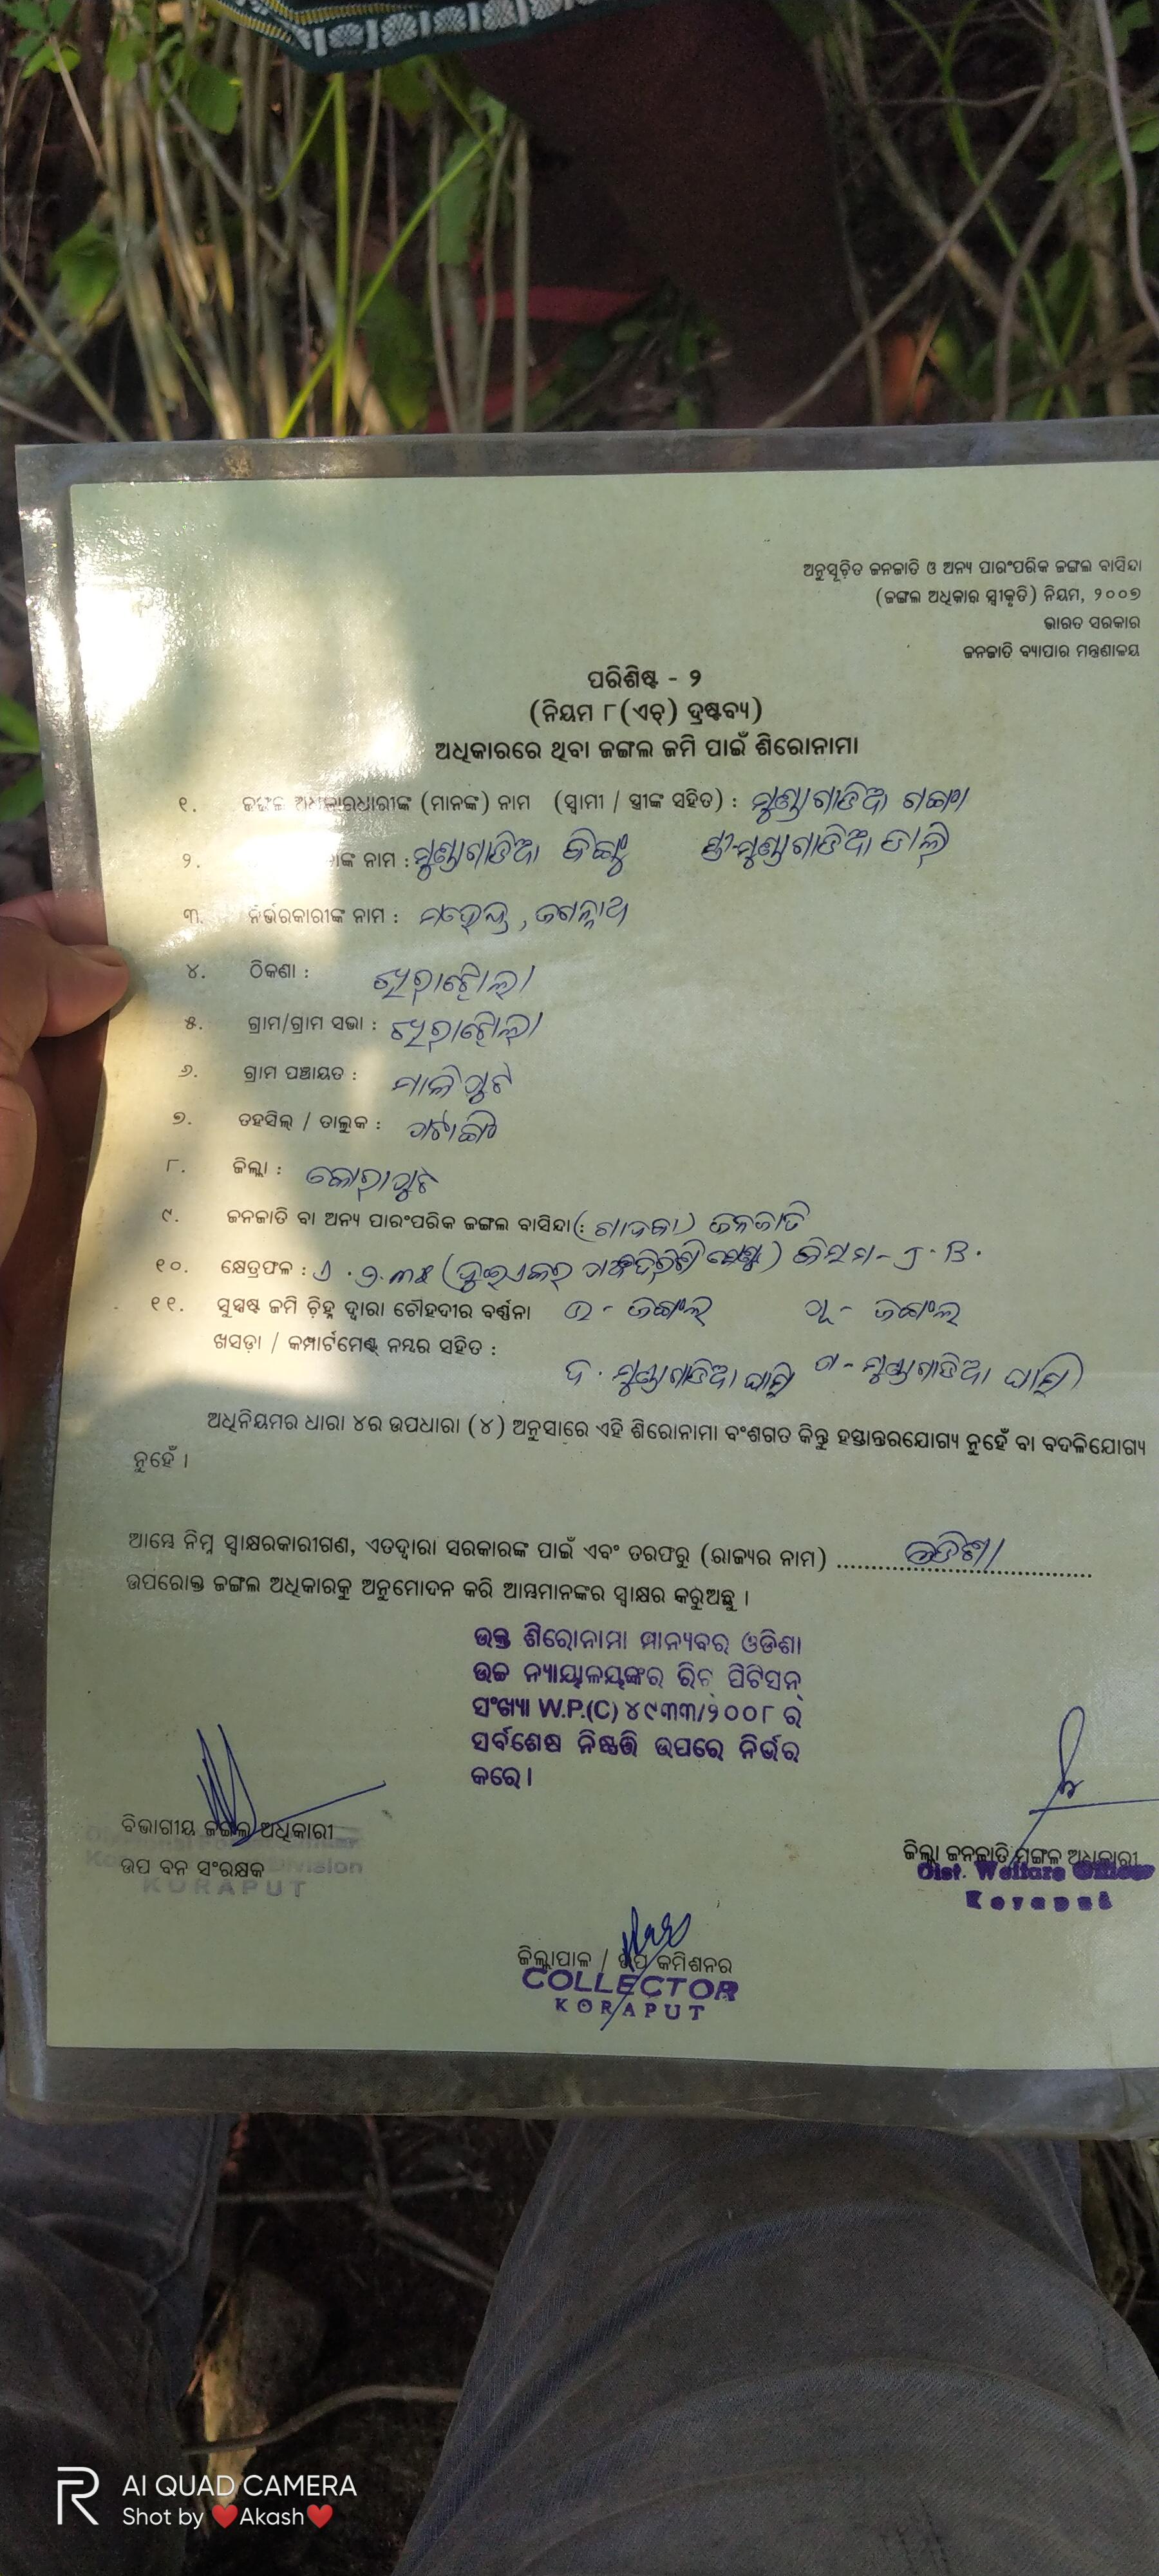 ଅନୁସୂଚିତ ଜନଜାତି ଓ ଅନ୍ୟ ପାରଂପରିକ ଜଙ୍ଗଲ ବାସିନ୍ଦା
(ଜଙ୍ଗଲ ଅଧିକାର ସ୍ୱୀକୃତି) ନିୟମ, ୨୦୦୭
ଭାରତ ସରକାର
ଜନଜାତି ବ୍ୟାପାର ମନ୍ତ୍ରଣାଳୟ
ପରିଶିଷ୍ଟ - ୨
(ନିୟମ ୮(ଏଚ୍) ଦ୍ରଷ୍ଟବ୍ୟ)
ଅଧିକାରରେ ଥିବା ଜଙ୍ଗଲ ଜମି ପାଇଁ ଶିରୋନାମା
୧. ଜଙ୍ଗଲ ଅଧିକାରଧାରୀଙ୍କ (ମାନଙ୍କ) ନାମ (ସ୍ୱାମୀ / ସ୍ତ୍ରୀଙ୍କ ସହିତ) : ମୁଣ୍ଡାଗାଡିଆ ଗଙ୍ଗା
୨. ନାମ : ମୁଣ୍ଡାଗାଡିଆ ସ୍ତ୍ରୀ-ମୁଣ୍ଡାଗାଡିଆ ଡାଲି
୩. ନିର୍ଭରକାରୀଙ୍କ ନାମ : ଜଗନ୍ନାଥ
୪. ଠିକଣା :
୫. ଗ୍ରାମ/ଗ୍ରାମ ସଭା :
୬. ଗ୍ରାମ ପଞ୍ଚାୟତ : ମାଲିପୁଟ
୭. ତହସିଲ୍ / ତାଲୁକ : ପଟାଙ୍ଗି
୮. ଜିଲ୍ଲା : କୋରାପୁଟ
୯. ଜନଜାତି ବା ଅନ୍ୟ ପାରଂପରିକ ଜଙ୍ଗଲ ବାସିନ୍ଦା : (ଗାଦବା) ଜନଜାତି
୧୦. କ୍ଷେତ୍ରଫଳ :
୧୧. ସୁସ୍ପଷ୍ଟ ଜମି ଚିହ୍ନ ଦ୍ୱାରା ଚୌହଦୀର ବର୍ଣ୍ଣନା ଉ - ଜଙ୍ଗଲ ପୂ - ଜଙ୍ଗଲ
ଖସଡ଼ା / କମ୍ପାର୍ଟମେଣ୍ଟ୍ ନମ୍ବର ସହିତ :
ଦ - ମୁଣ୍ଡାଗାଡିଆ ଘାସି ପ - ମୁଣ୍ଡାଗାଡିଆ ଘାସି
ଅଧିନିୟମର ଧାରା ୪ର ଉପଧାରା (୪) ଅନୁସାରେ ଏହି ଶିରୋନାମା ବଂଶଗତ କିନ୍ତୁ ହସ୍ତାନ୍ତରଯୋଗ୍ୟ ନୁହେଁ ବା ବଦଳିଯୋଗ୍ୟ
ନୁହେଁ ।
ଆମ୍ଭେ ନିମ୍ନ ସ୍ୱାକ୍ଷରକାରୀଗଣ, ଏତଦ୍ୱାରା ସରକାରଙ୍କ ପାଇଁ ଏବଂ ତରଫରୁ (ରାଜ୍ୟର ନାମ) ଓଡିଶା
ଉପରୋକ୍ତ ଜଙ୍ଗଲ ଅଧିକାରକୁ ଅନୁମୋଦନ କରି ଆମ୍ଭମାନଙ୍କର ସ୍ୱାକ୍ଷର କରୁଅଛୁ ।
ଉକ୍ତ ଶିରୋନାମା ମାନ୍ୟବର ଓଡିଶା
ଉଚ୍ଚ ନ୍ୟାୟାଳୟଙ୍କର ରିଟ୍ ପିଟିସନ୍
ସଂଖ୍ୟା W.P.(C) ୪୯୩୩/୨୦୦୮ ର
ସର୍ବଶେଷ ନିଷ୍ପତ୍ତି ଉପରେ ନିର୍ଭର
କରେ।
ବିଭାଗୀୟ ଜଙ୍ଗଲ ଅଧିକାରୀ
ଉପ ବନ ସଂରକ୍ଷକ
Division
KORAPUT
ଜିଲ୍ଲା ଜନଜାତି ମଙ୍ଗଳ ଅଧିକାରୀ
Dist. Welfare Officer
Koraput
ଜିଲ୍ଲାପାଳ / ଉପ କମିଶନର
COLLECTOR
KORAPUT
AI QUAD CAMERA
Shot by ❤️Akash❤️